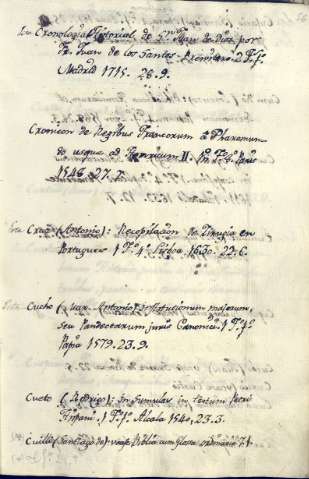 Cronologia Historial de Sn Juan de Dios por
Fr. Juan de los Santos 2 Ts. fo.
Madrid 1715. 26.9.
Cronicon de Regibus Francorum a Pharamundo
usque ad Henricum II. 1 To. 8o. Paris
1548. 27.7.
Cruz (Antonio): Recopilacion de Zirugia en
Portugues 1 To. 4o. Lisboa. 1630. 22.6.
Cucho ( Antonio): Institucionum maiorum,
seu Pandectarum juris Canonici. 1 To. fo.
Papie 1579. 23.9.
Cueto ( ): in sumulas in textum Petri
Hispani. 1 To. fo. Alcala 154 . 23.3.
(Santiago de): vease Biblia cum glosa ordinaria T. 1.